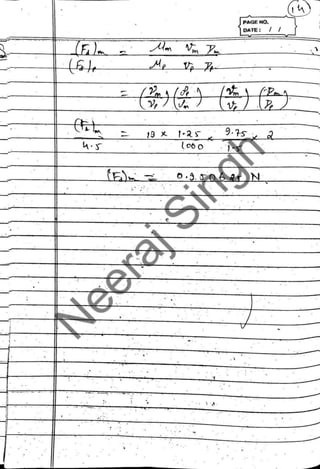 14
PAGE NO.
DATE: / /
(Fd)m / (Fd)p = μm Vm Dm / μp Vp Dp
= (νm/νp) (ρp/ρm) (Vm/Vp) (Dm/Dp)
(Fd)m / 4.5 = 13 × 1.25/1000 × 9.75/1.5 × 2
(Fd)m = N
Neeraj Singh